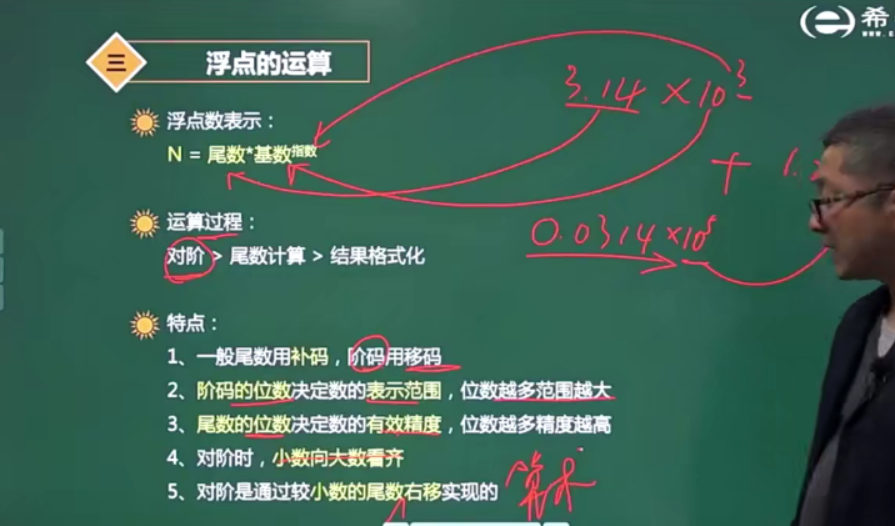 希
三 浮点的运算
3.14 × 10³
浮点数表示：
N = 尾数*基数指数
+ 1.
运算过程：
0.0314×10⁵
对阶 > 尾数计算 > 结果格式化
特点：
1、一般尾数用补码，阶码用移码
2、阶码的位数决定数的表示范围，位数越多范围越大
3、尾数的位数决定数的有效精度，位数越多精度越高
4、对阶时，小数向大数看齐
5、对阶是通过较小数的尾数右移实现的
算术